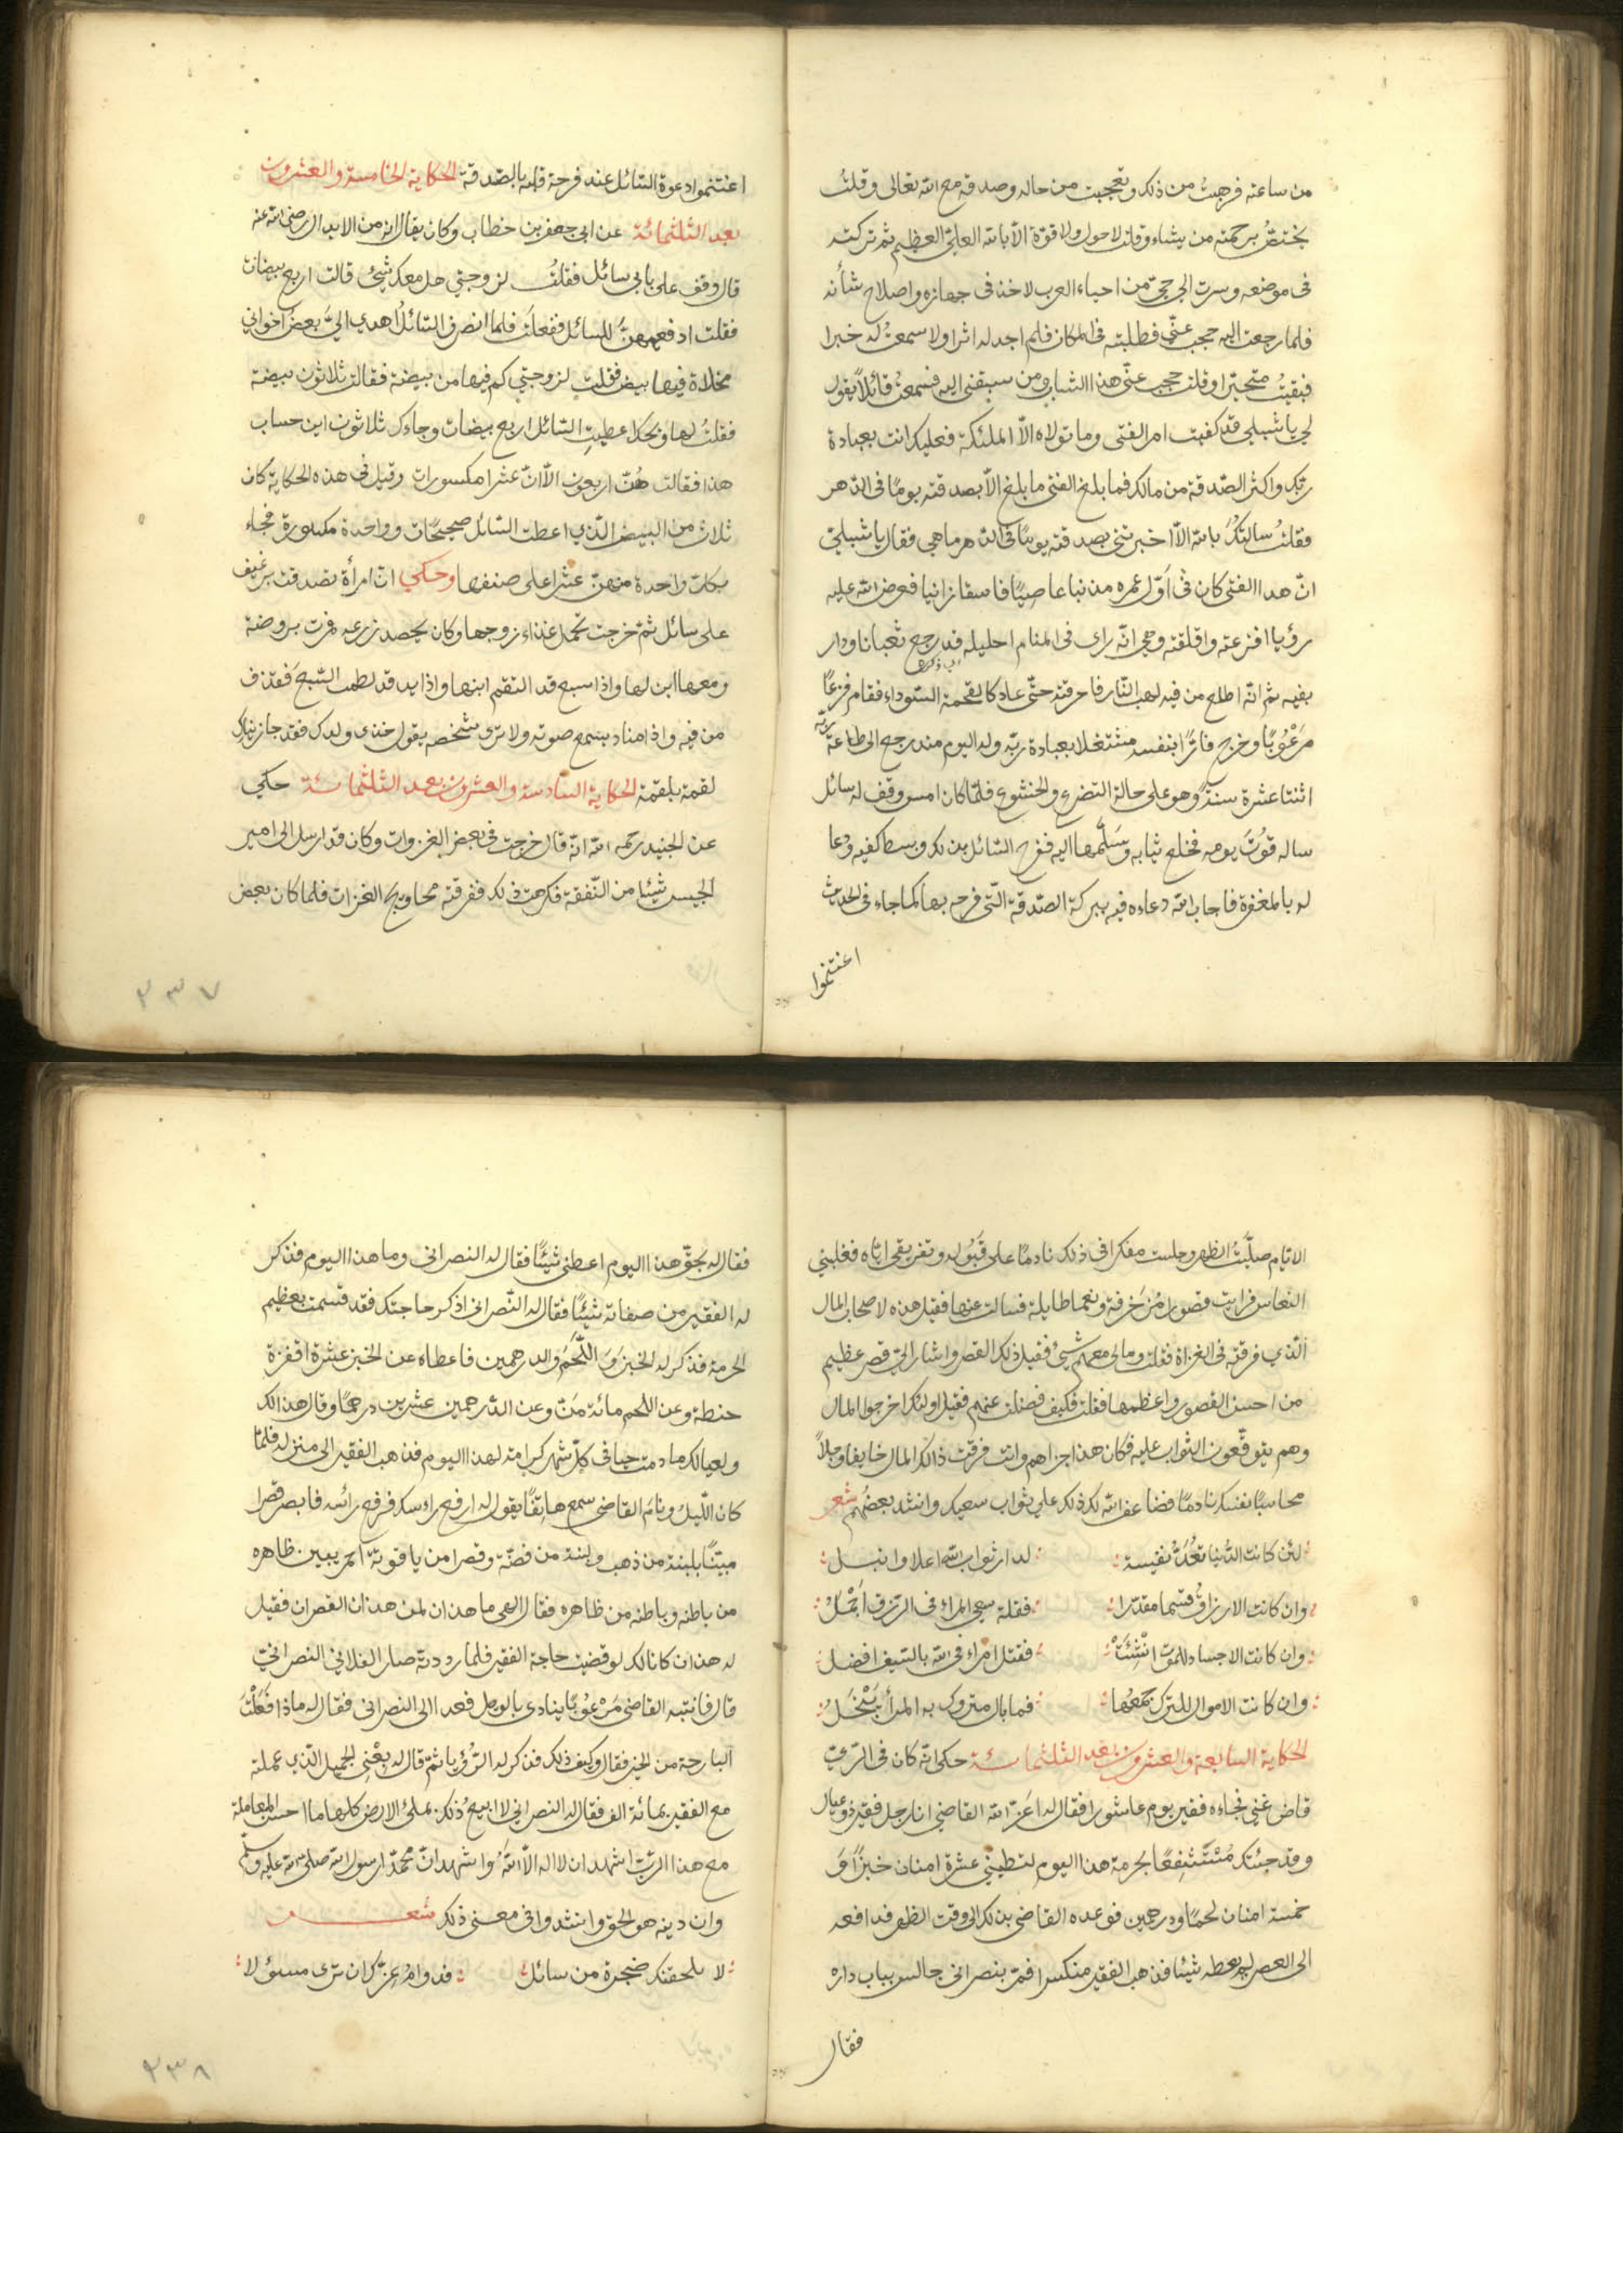 من ساعته فرجبتُ من ذلك وتعجبت من حاله وصدقه مع الله تعالى وقلتُ
يختصّ برحمته من يشاء وقلت لاحول ولاقوة الّا بالله العليّ العظيم ثم تركته
فى موضعه وسرت الى حيّ من احياء العرب لاخذ فى جهازه واصلاح شأنه
فلما رجعت اليه حجب عنّي فطلبته فى المكان فلم اجد له اثرا ولا سمعتُ له خبرا
فبقيتُ متحيّرا وقلت حجب عنّي هذا الشاب ومن سبقنى اليه فسمعتُ قائلاً يقول
لي يا شبلي قد كفيت امر الفتى وما تولاه الّا الملئكة فعليك انت بعبادة
ربّك واكثر الصّدقة من مالك فما بلغ الفتى ما بلغ الّا بصدقته يومًا فى الدّهر
فقلتُ سالتكُ بالله الّا اخبرتنى بصدقته يومًا فى الدّهر ما هي فقال يا شبليّ
انّ هذا الفتى كان فى اوّل عمره مذنبا عاصيًا فاسقا زانيا فعرض الله عليه
رؤيا افزعته واقلقته وهي انّه راى فى المنام احليله قد رجع ثعبانا ودار
بفيه ثم انّه اطلع من فيه لهب النّار فاحرقته حتّى عاد كالفحمة السّوداء فقام فزعًا
مَرعُوبًا وخرج فارًّا بنفسه مشتغلا بعبادة ربّه وله اليوم منذ رجع الى طاعة ربّه
اثنتا عشرة سنةً وهو على حالة التضرع والخشوع فلمّا كان امس وقف له سائل
ساله قوُتَ يومه فخلع ثيابه وسَلّمها اليه ففرح السّائل بذلك وبسط كفيه ودعا
له بالمغفرة فاجاب الله دعاءه فيه ببركة الصّدقة الّتى فرحه بها كما جاء فى الحديث
اغتنموا
اغتنموا دعوة السّائل عند فرحة قلبه بالصّدقة الحكاية الخامسة والعشرون
بعد الثلثمائة عن ابى جعفر بن خطاب وكان يقال انه من الابدال رضى الله عنه
قال وقف على بابى سائل فقلتُ لزوجتي هل معك شيئ قالت اربع بيضات
فقلت ادفعيهنّ للسائل ففعلَت فلما انصرف السّائلُ اُهدى اليَّ بعضُ اخوانى
مخلاة فيها بيض فقلت لزوجتي كم فيها من بيضة فقالت ثلاثون بيضة
فقلتُ لها ويحك اعطيتِ السّائل اربع بيضات وجاءك ثلاثون اين حساب
هذا فقالت هُنّ اربعون الّا انّ عشرا مكسورات وقيل فى هذه الحكاية كان
ثلاث من البيض الّذى اعطت السّائل صحيحات وواحدة مكسورة فجاء
بكلّ واحدة منهنّ عشرا على صنفها وحكي انّ امرأة تصدقت برغيف
على سائل ثمّ خرجت تحمل غذاء زوجها وكان يحصد زرعه فمرت بروضة
ومعها ابن لها واذا سبع قد التقم ابنها واذا يد قد لطمت السّبع فقذف
من فيه واذا مناد يسمع صوته ولا ترى شخصه يقول خذى ولدك فقد جازيناك
لقمة بلقمة الحكاية السّادسة والعشرون بعد الثلثمائة حكي
عن الجنيد رحمه الله انّه قال خرجت فى بعض الغزوات وكان قد ارسل الى امير
الجيس شيئا من النّفقة فكرهت ذلك ففرقته محاويج الغزات فلما كان بعض
٣٣٧
الايّام صلّيتُ الظهر وجلست مفكرا فى ذلك نادمًا على قَبُوله وتفريقى ايّاه فغلبنى
النعاس فرايت قصورا مُزَخرفةً ونعما طايلة فسالت عنها فقيل هذه لاصحاب المال
الّذى فرقته فى الغزاة فقلت ومالى معهم شيئ فقيل ذلك القصر واشار الىّ قصر عظيم
من احسن القصور واعظمها فقلت فكيف فضلت عنهم فقيل اولئك اخرجوا المال
وهم يتوقّعون الثواب عليه فكان هذا جزاهم وانت فرقت ذالك المال خايفا وجلاً
محاسبًا نفسك نادمًا فضاعف الله لك ذلك على ثواب سعيك وانشد بعضُهم شعر
لئن كانت الدّنيا تعُدّ نفيسة : لدار ثواب الله اعلا وانبل
وان كانت الارزاقُ قسما مقدّرا : فقلة سعى المراء فى الرّزق اَجْمَلُ
وان كانت الاجساد للموت انْشِئَتْ : فقتل امراء فى الله بالسّيف افضل
وان كانت الاموال للترك جَمعُها : فما بال متروك به المرأ يَبْخَلُ
الحكاية السّابعة والعشرون بعد الثلثمائة حكى انّه كان فى الرّيّ
قاض غني فجاءه فقير يوم عاشورا فقال له اعَزّ الله القاضي انا رجل فقير ذو عيال
وقد جئتك مُسْتَشفعًا بحرمة هذا اليوم لتعطينى عشرة امنان خبزًا وَ
خمسة امنان لحمًا ودرهمين فوعده القاضى بذلك الى وقت الظهر فدافعه
الى العصر لم يعطه شيئا فذهب الفقير منكسرا فمرّ بنصرانى جالس بباب داره
فقال
فقال له بحقّ هذا اليوم اعطنى شيئًا فقال له النصرانى وما هذا اليوم فذكر
له الفقير من صفاته شيئًا فقال له النّصرانى اذكر حاجتك فقد قسمت بعظيم
الحرمة فذكر له الخبز وَ اللّحَمَ والدرهمين فاعطاه عن الخبز عشرة اقفزة
حنطة وعن اللحم مائة مَنّ وعن الدّرهمين عشرين درهمًا وقال هذا لك
ولعيالك ما دمت حيا فى كلّ شهر كرامة لهذا اليوم فذهب الفقير الى منزله فلمّا
كان اللّيلُ ونامَ القاضى سمع هاتِفًا يقول له ارفع راءسك فرفع رائسه فابصر قصرا
مبنيًّا بلبنة من ذهب ولبنة من فضّة وقصرا من ياقوتة احمر يبين ظاهره
من باطنه وباطنه من ظاهره فقال الهى ما هذان لمن هذان القصران فقيل
له هذان كانا لك لو قضيت حاجة الفقير فلما رددته صارا لفلانى النصرانيّ
قال فانتبه القاضى مَرْعوُبًا ينادى بالويل فعدا الى النصرانى فقال له ماذا فَعَلْتَ
البارحة من الخير فقال وكيف ذلك فذكر له الرُؤيا ثمّ قال له بعْنى الجميل الّذى عملته
مع الفقير بمائة الف فقال له النصرانى لا ابيع ذُلك بملئ الارض كلها ما احسن المعاملة
مع هذا الرّبّ اشهد ان لا اله الّا اللهُ واشهد انّ محمّدا رسول الله صلى الله عليه وسلّم
وان دينه هو الحق وانشدوا فى معنى ذلك شعر
لا تلحقنك ضجرة من سائل : فدوامُ عزّك ان ترى مسئولا
٣٣٨